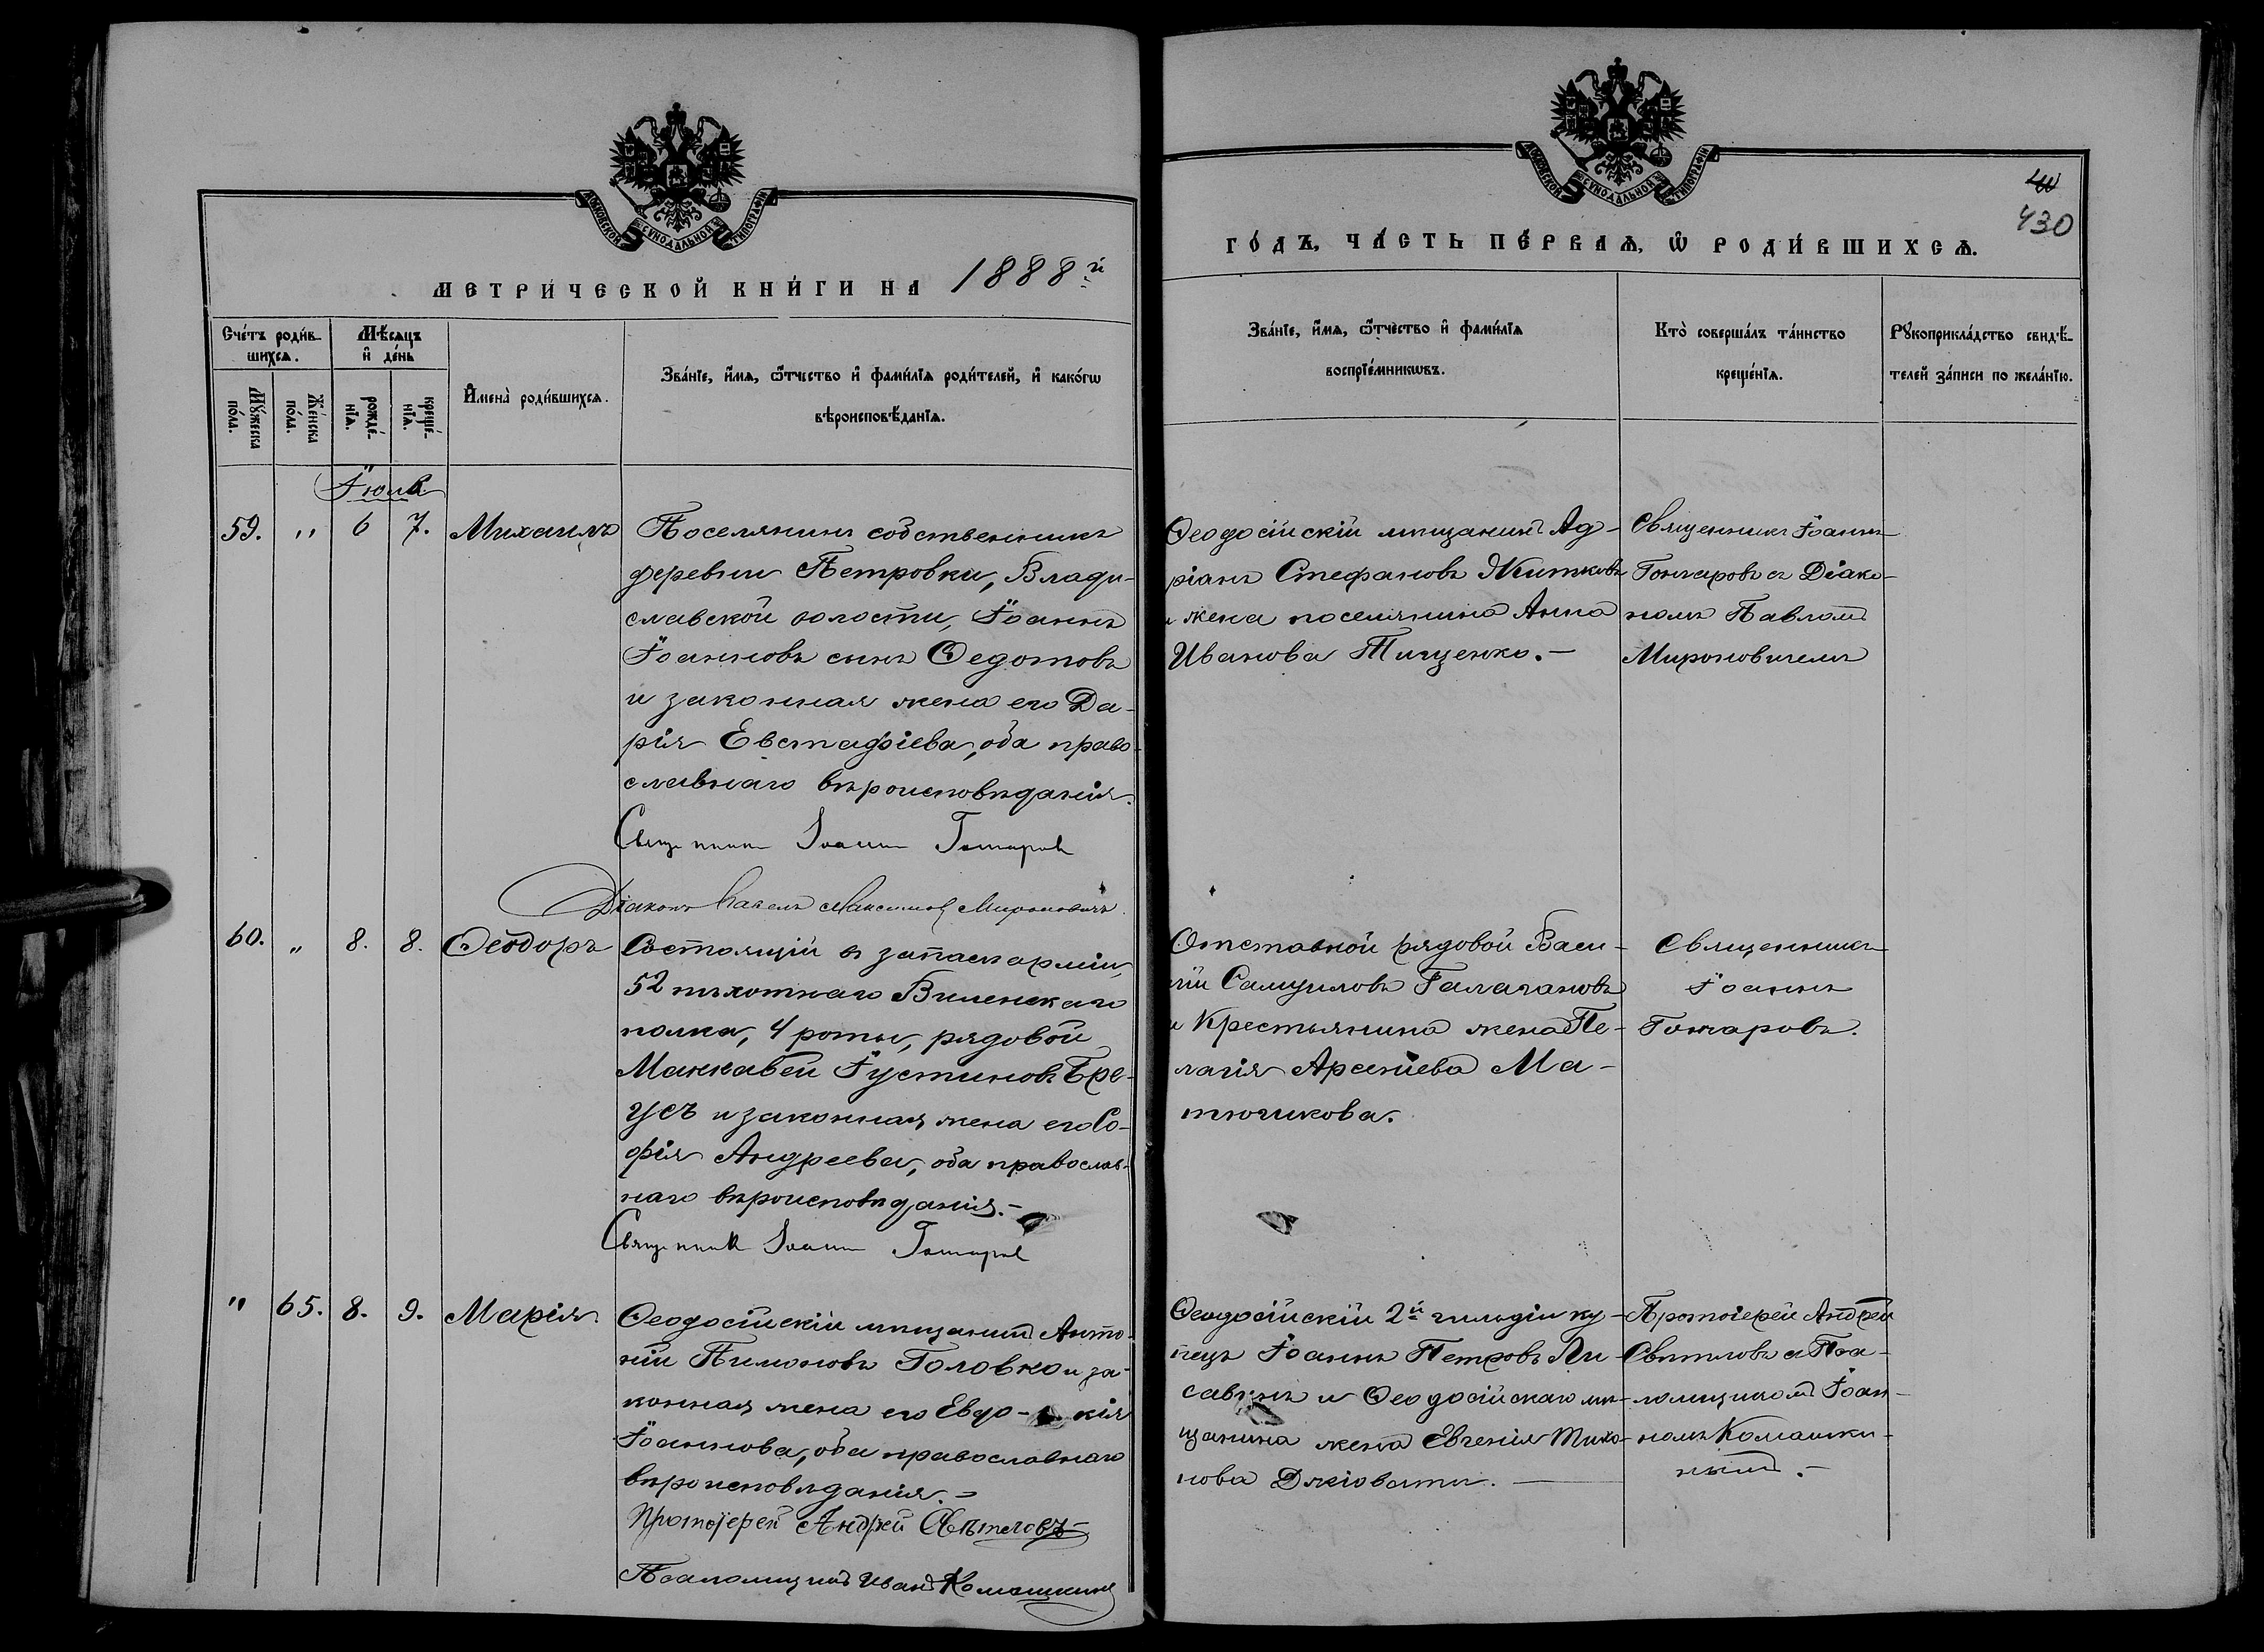 МОСКОВСКОЙ СѴНОДАЛЬНОЙ ТИПОГРАФІИ
МЕТРИ́ЧЕСКОЙ КНИ́ГИ НА 1888й
Сче́тъ роди́в-
шихсѧ.
Мѣ́сѧцъ
и҆ де́нь
Мꙋ́жеска
по́ла.
Же́нска
по́ла.
рожде́-
нїѧ.
креще́-
нїѧ.
И҆мена̀ роди́вшихсѧ.
Зва́нїе, и҆́мѧ, ѻ҆́тчество и҆ фами́лїѧ роди́телей, и҆ како́гѡ
вѣроисповѣ́данїѧ.
Іюль
59. " 6 7. Михаилъ
Поселянинъ собственникъ
деревни Петровки, Влади-
славской волости, Іоаннъ
Іоанновъ сынъ Ѳедотовъ
и законная жена его Да-
рія Евстафіева, оба право-
славнаго вѣроисповѣданія.
Священникъ Іоаннъ Гончаровъ
Діаконъ Павелъ Максимов Мироновичъ.
60. " 8. 8. Ѳеодоръ
Состоящій въ запасѣ арміи,
52 пѣхотнаго Виленскаго
полка, 4 роты, рядовой
Маккавей Іустиновъ Бре-
усъ и законная жена его Со-
фія Андреева, оба православ-
наго вѣроисповѣданія.-
Священникъ Іоаннъ Гончаровъ
" 65. 8. 9. Марія
Ѳеодосійскій мѣщанинъ Анто-
ній Пимоновъ Головко и за-
конная жена его Евдо-кія
Іоаннова, оба православнаго
вѣроисповѣданія.-
Протоіерей Андрей Свѣтловъ
Псаломщикъ Иванъ Комашкинъ
МОСКОВСКОЙ СѴНОДАЛЬНОЙ ТИПОГРАФІИ
430
ГО́ДЪ, ЧА́СТЬ ПЕ́РВАѦ, Ѡ҆ РОДИ́ВШИХСѦ.
Зва́нїе, и҆́мѧ, ѻ҆́тчество и҆ фами́лїѧ
воспрїе́мникѡвъ.
Кто̀ соверша́лъ та́инство
креще́нїѧ.
Рꙋкоприкла́дство свидѣ́-
телей за́писи по жела́нїю.
Ѳеодосійскій мѣщанинъ Ад-
ріанъ Стефановъ Житковъ
и жена поселянина Анна
Иванова Тищенко.-
Священникъ Іоаннъ
Гончаровъ съ Діако-
номъ Павломъ
Мироновичемъ
Отставной рядовой Васи-
лій Самуиловъ Галагановъ
и Крестьянина жена Пе-
лагія Арсеніева Ма-
тюшкова.
Священникъ
Іоаннъ
Гончаровъ.
Ѳеодосійскій 2й гильдіи ку-
пецъ Іоаннъ Петровъ
и Ѳеодосійскаго мѣ-
щанина жена Евгенія Тихо-
нова
Протоіерей Андрей
Свѣтловъ съ Пса-
ломщикомъ Іоан-
номъ Комашки-
нымъ.-